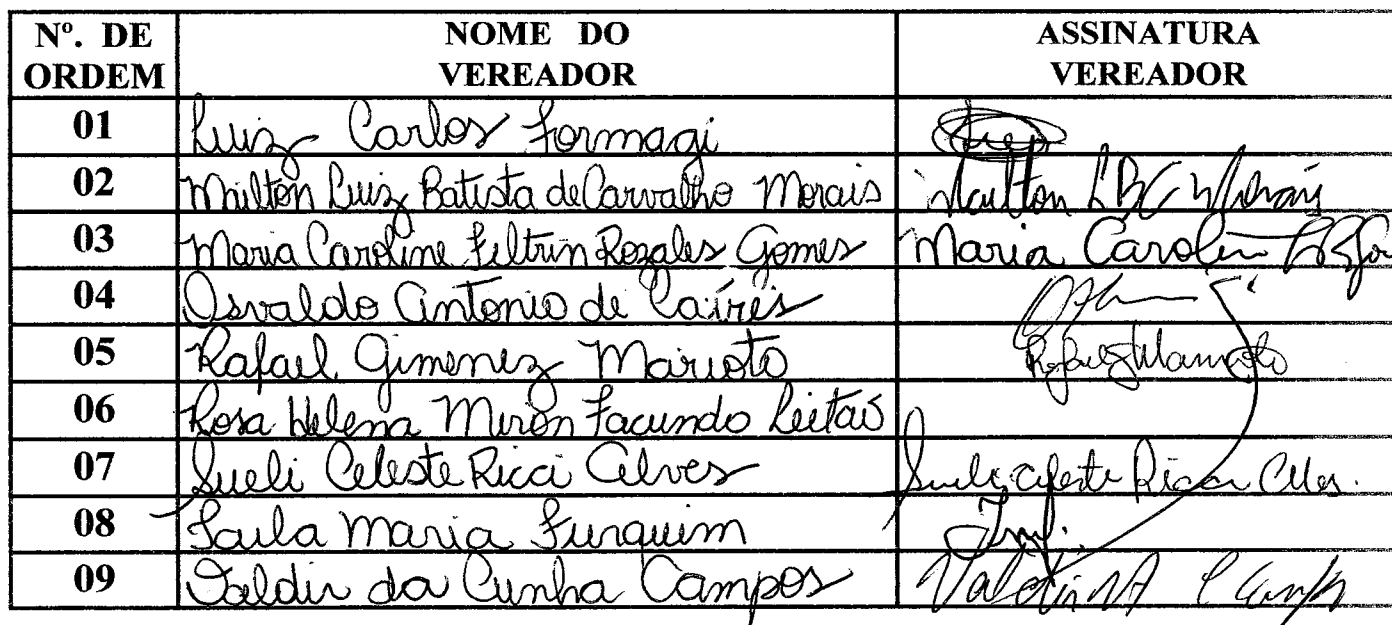 Nº. DE ORDEM NOME DO VEREADOR ASSINATURA VEREADOR
01 Luiz Carlos Formagi
02 Mailton Luiz Batista de Carvalho Morais Mailton LBC Morais
03 Maria Caroline Feltrin Rozales Gomes Maria Carolin
04 Osvaldo Antonio de Caíres
05 Rafael Gimenez Marioto Rafael Marioto
06 Rosa Helena Miron Facundo Leitao
07 Sueli Celeste Ricci Alves Sueli Celeste Ricci Alves.
08 Taila Maria Furquim
09 Valdir da Cunha Campos Valdir